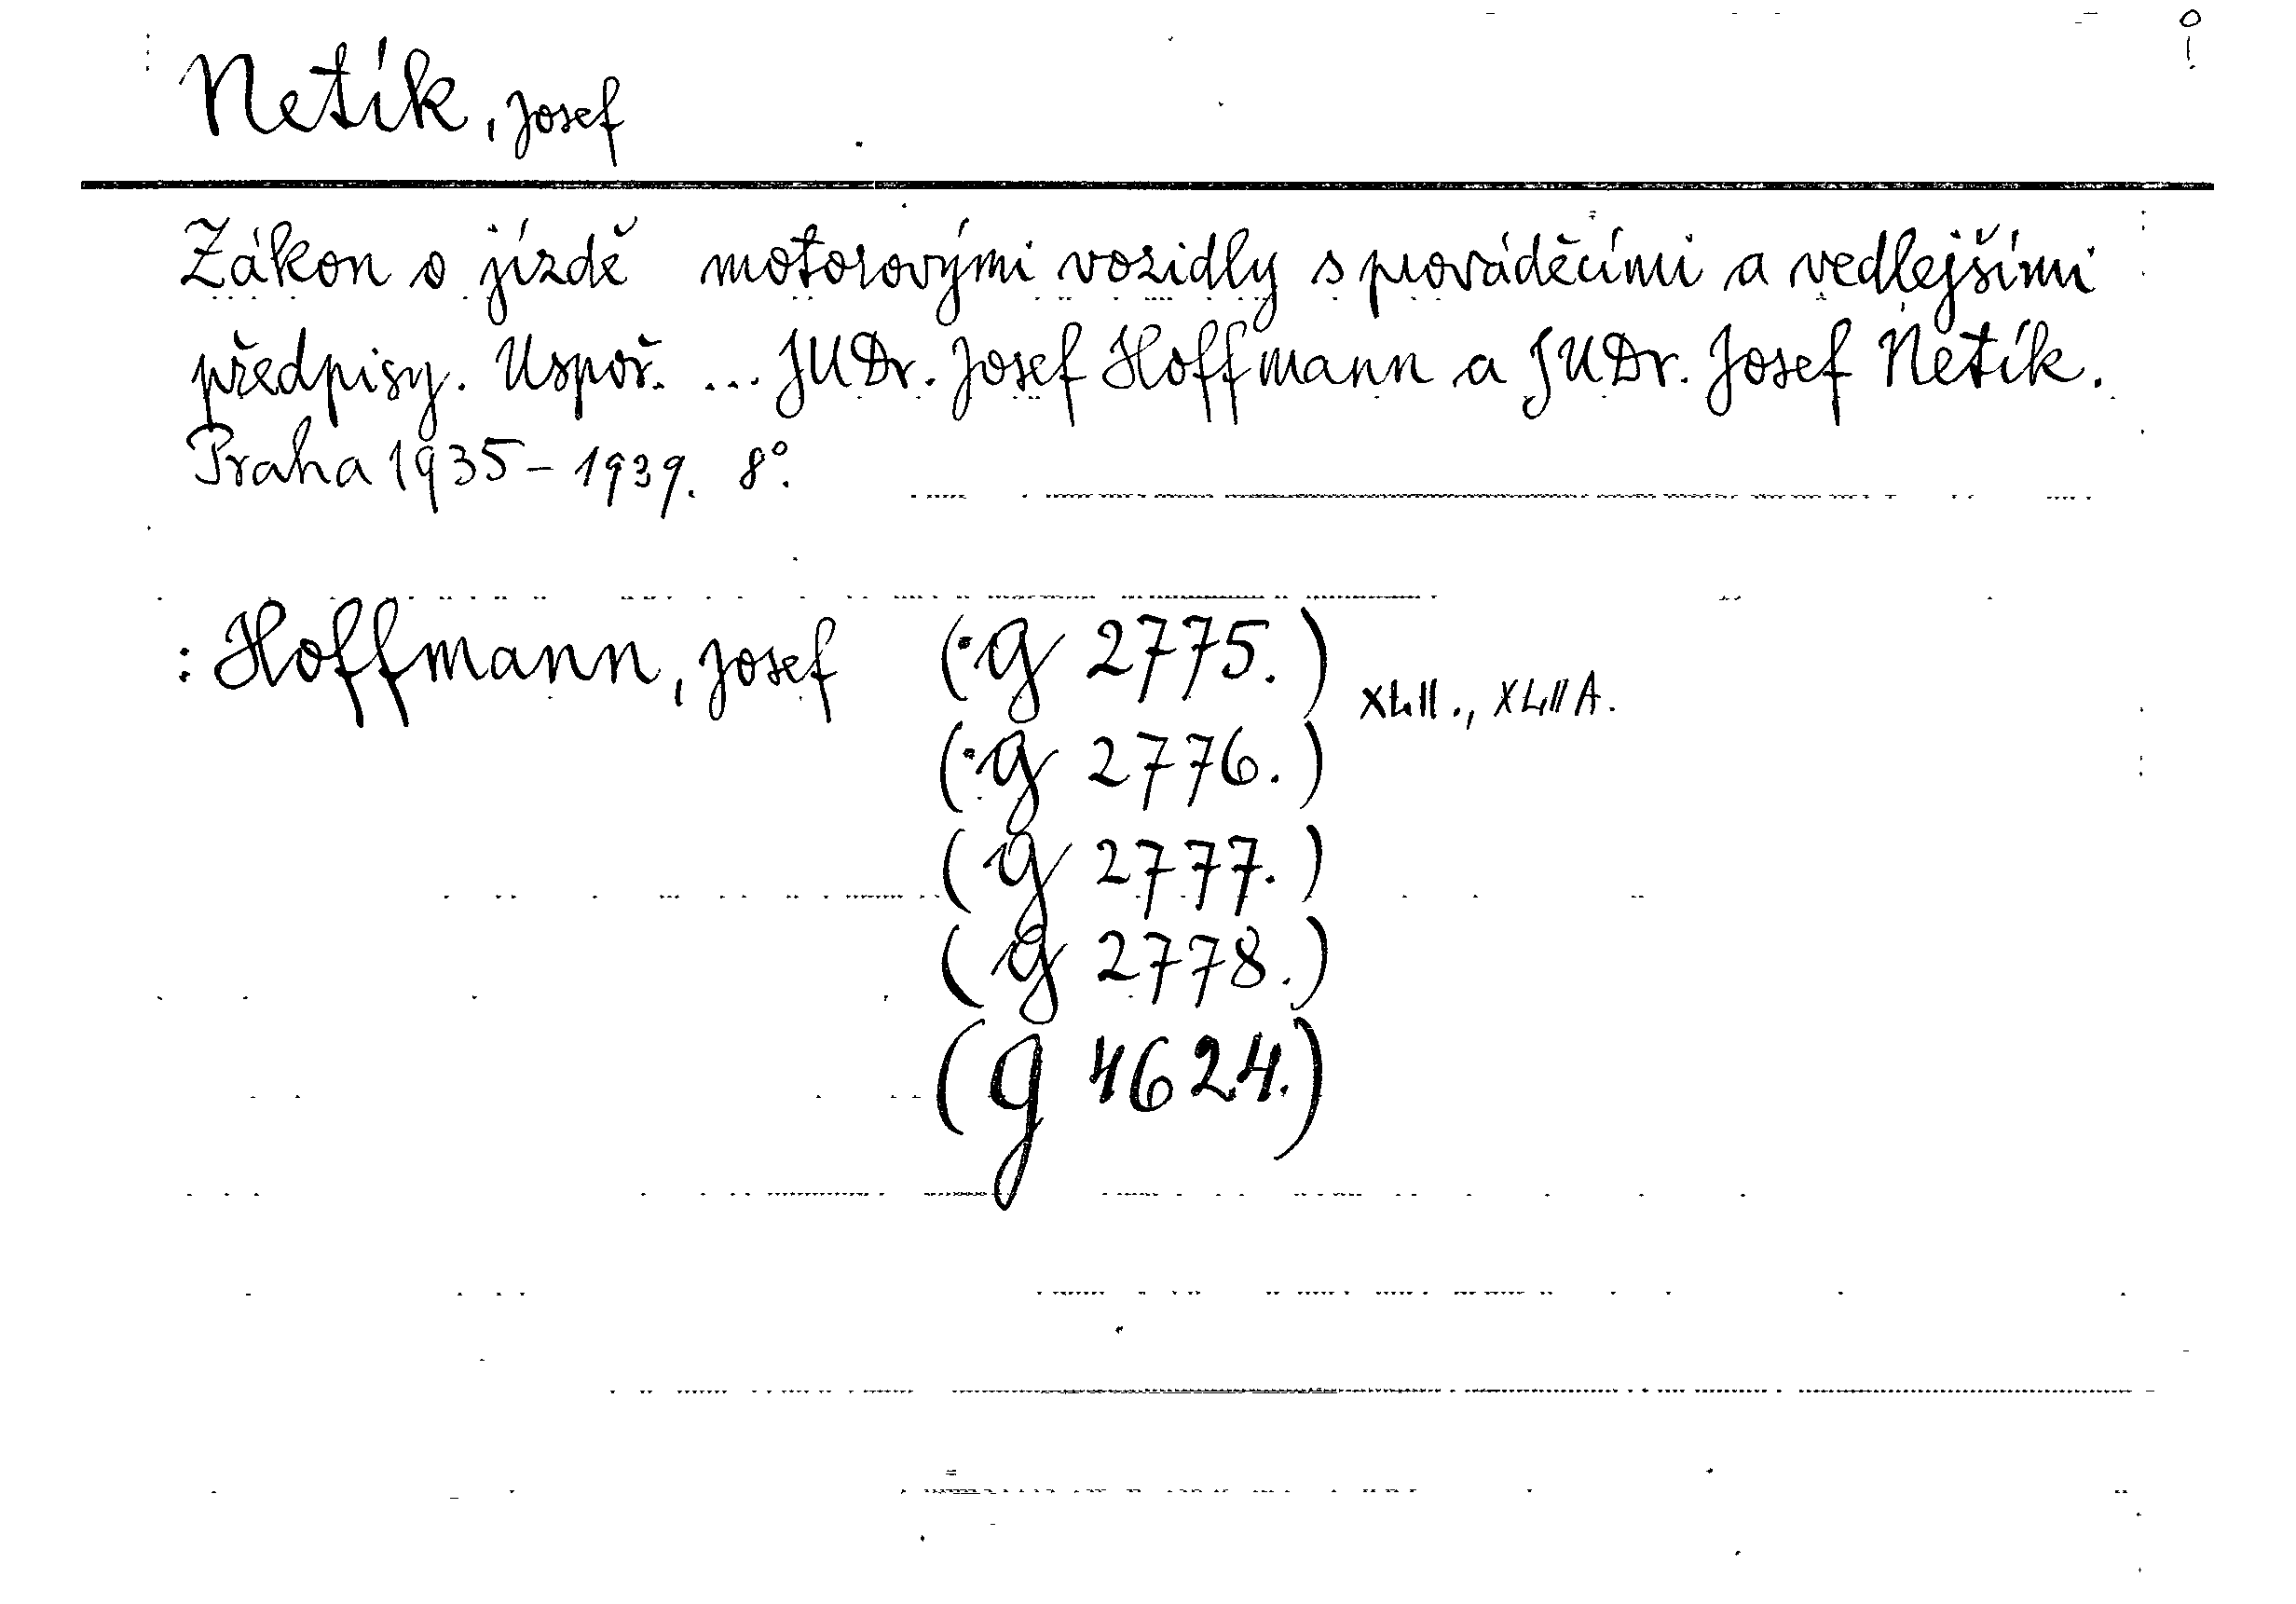 Netík, Josef
Zákon o jízdě motorovými vozidly s prováděcími a vedlejšími
předpisy. Uspoř. ... JUDr. Josef Hoffmann a JUDr. Josef Netík.
Praha 1935-1939. 8°.
: Hoffmann, Josef (g 2775.) XLII., XLII A.
(g 2776.)
(g 2777.)
(g 2778.)
(g 4624.)